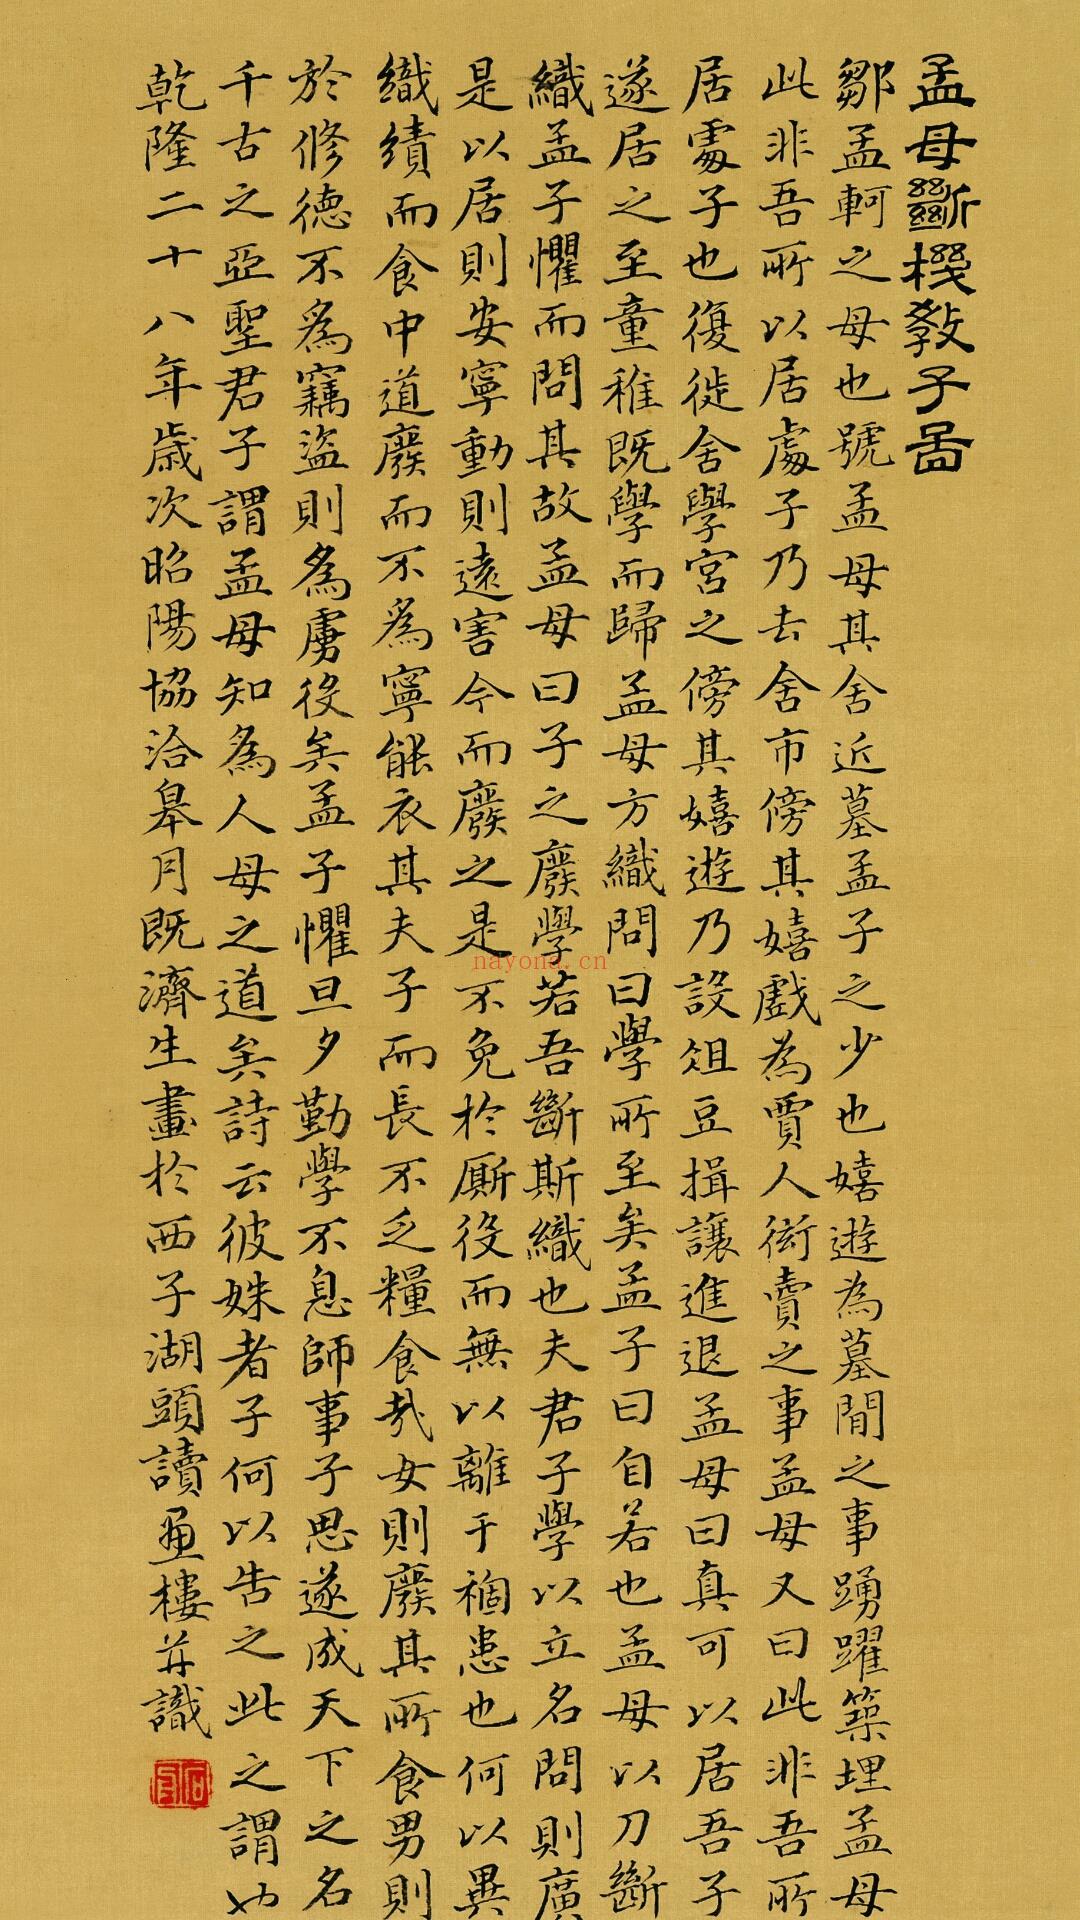 孟母斷機教子啚
鄒孟軻之母也號孟母其舍近墓孟子之少也嬉遊為墓間之事踴躍築埋孟母
此非吾所以居處子乃去舍市傍其嬉戲為賈人衒賣之事孟母又曰此非吾所
居處子也復徙舍學宮之傍其嬉遊乃設俎豆揖讓進退孟母曰真可以居吾子
遂居之至童稚既學而歸孟母方織問曰學所至矣孟子曰自若也孟母以刀斷
織孟子懼而問其故孟母曰子之廢學若吾斷斯織也夫君子學以立名問則廣
是以居則安寧動則遠害今而廢之是不免於厮役而無以離于禍患也何以異
織績而食中道廢而不為寧能衣其夫子而長不乏糧食哉女則廢其所食男則
於修德不為竊盜則為虜役矣孟子懼旦夕勤學不息師事子思遂成天下之名
千古之亞聖君子謂孟母知為人母之道矣詩云彼姝者子何以告之此之謂也
乾隆二十八年歲次昭陽協洽皋月既濟生畫於西子湖頭讀畫樓并識
nayona.cn